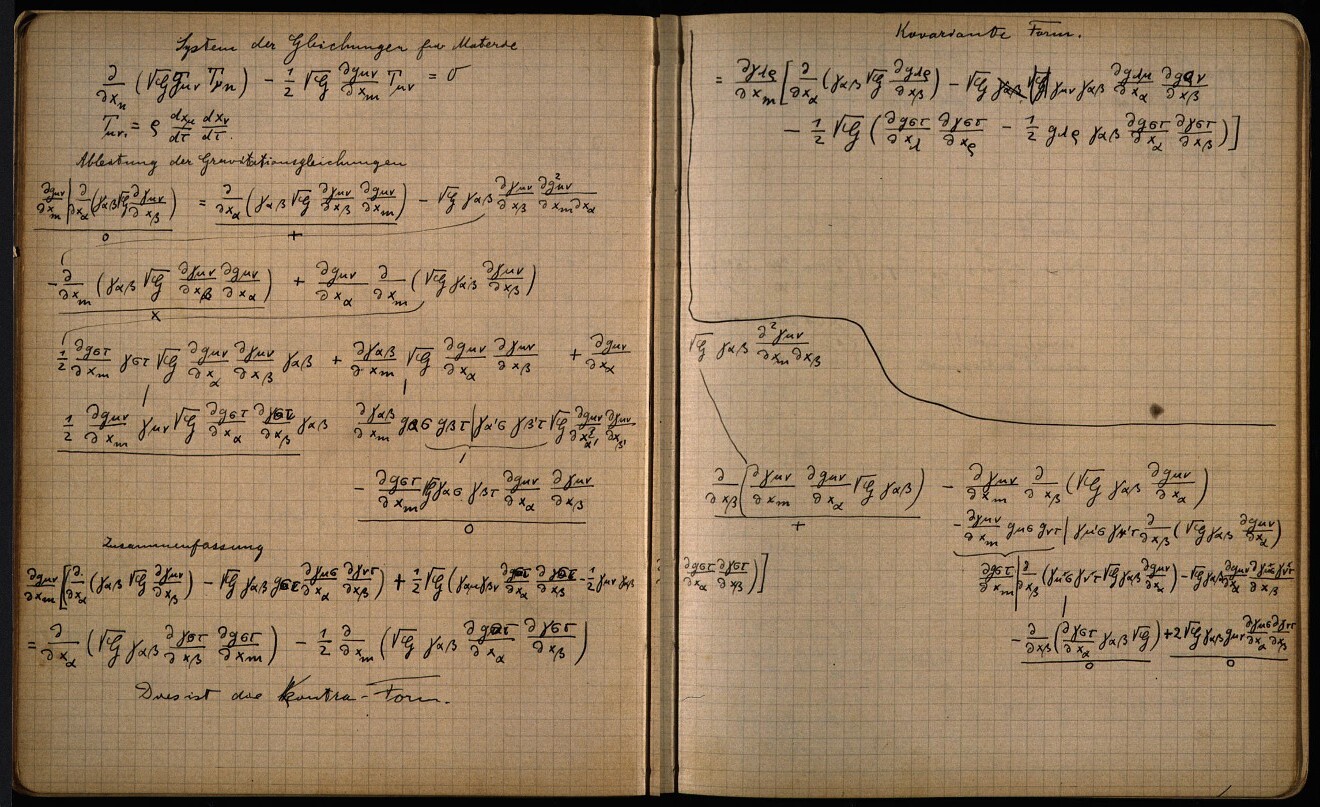 System der Gleichungen für Materie
∂/∂xₙ (√G gμν Tμn) − 1/2 √G ∂gμν/∂xₘ Tμν = 0
Tμν = ϱ dxμ/dτ dxν/dτ.
Ableitung der Gravitationsgleichungen
∂gμν/∂xₘ | ∂/∂xα (γαβ √G ∂γμν/∂xβ) = ∂/∂xα (γαβ √G ∂γμν/∂xβ ∂gμν/∂xₘ) − √G γαβ ∂γμν/∂xβ ∂²gμν/∂xₘ∂xα
0 +
− ∂/∂xₘ (γαβ √G ∂γμν/∂xβ ∂gμν/∂xα) + ∂gμν/∂xα ∂/∂xₘ (√G γαβ ∂γμν/∂xβ)
x
1/2 ∂gστ/∂xₘ γστ √G ∂gμν/∂xα ∂γμν/∂xβ γαβ + ∂γαβ/∂xₘ √G ∂gμν/∂xα ∂γμν/∂xβ + ∂gμν/∂xα
1/2 ∂gμν/∂xₘ γμν √G ∂gστ/∂xα ∂γστ/∂xβ γαβ ∂γαβ/∂xₘ gασ gβτ | γα'σ γβ'τ √G ∂gμν/∂xα' ∂γμν/∂xβ'
− ∂gστ/∂xₘ √G γασ γβτ ∂gμν/∂xα ∂γμν/∂xβ
0
Zusammenfassung
∂gμν/∂xₘ [∂/∂xα (γαβ √G ∂γμν/∂xβ) − √G γαβ gστ ∂γμσ/∂xα ∂γντ/∂xβ) + 1/2 √G (γαμ γβν ∂gστ/∂xα ∂γστ/∂xβ − 1/2 γμν γαβ
= ∂/∂xα (√G γαβ ∂γστ/∂xβ ∂gστ/∂xₘ) − 1/2 ∂/∂xₘ (√G γαβ ∂gστ/∂xα ∂γστ/∂xβ)
Dies ist die Kontra-Form.
Kovariante Form.
= ∂γλϱ/∂xₘ [∂/∂xα (γαβ √G ∂gλϱ/∂xβ) − √G γμν γαβ ∂gλμ/∂xα ∂gϱν/∂xβ
− 1/2 √G (∂gστ/∂xλ ∂γστ/∂xϱ − 1/2 gλϱ γαβ ∂gστ/∂xα ∂γστ/∂xβ)]
√G γαβ ∂²γμν/∂xₘ∂xβ
∂/∂xβ (∂γμν/∂xₘ ∂gμν/∂xα √G γαβ) − ∂γμν/∂xₘ ∂/∂xβ (√G γαβ ∂gμν/∂xα)
+
− ∂γμν/∂xₘ gμσ gντ | γμ'σ γν'τ ∂/∂xβ (√G γαβ ∂gμν/∂xα)
∂gστ/∂xα ∂γστ/∂xβ)]
∂gστ/∂xₘ | ∂/∂xβ (γμσ γντ √G γαβ ∂gμν/∂xα) − √G γαβ ∂gμν/∂xα ∂γμσ γντ/∂xβ
− ∂/∂xβ (∂γστ/∂xα γαβ √G) + 2 √G γαβ gμν ∂γμσ/∂xα ∂γντ/∂xβ
0 0